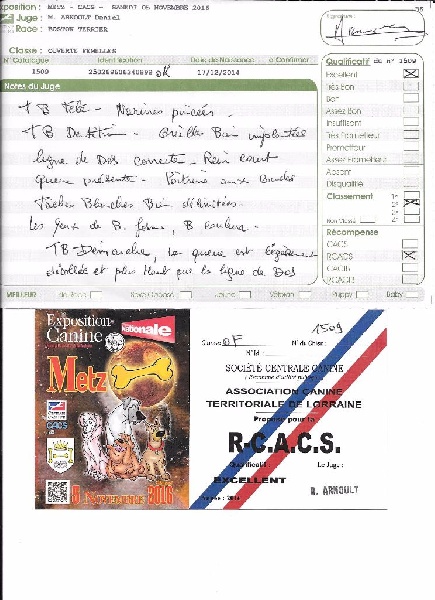 Exposition : METZ - CACS - SAMEDI 05 NOVEMBRE 2016
Juge : M. ARNOULT Daniel
Race : BOSTON TERRIER
Classe : OUVERTE FEMELLES
N° Catalogue Identification Date de Naissance à Confirmer
1509 17/12/2014
Notes du Juge
TB Tête - Narines pincées.
TB Dentition - Oreilles Bien implantées
ligne de Dos correcte - Rein court
queue présente -
Taches Blanches Bien délimitées
Les yeux de B. forme, B couleur
TB Démarche, la queue est légèrement
et plus haut que la ligne de Dos
Qualificatif du n° 1509
Excellent
Très Bon
Bon
Assez Bon
Insuffisant
Très Prometteur
Prometteur
Assez Prometteur
Absent
Disqualifié
Classement
Non Classé
Récompense
CACS
RCACS
CACIB
RCACIB
MEILLEUR de Race Sexe Opposé Jeune Vétéran Puppy Baby
Exposition
Canine
Nationale
Metz
CACS
Novembre 2016
1509
Classe OF N° du Chien :
N° Id :
SOCIÉTÉ CENTRALE CANINE
ASSOCIATION CANINE
TERRITORIALE DE LORRAINE
Propose pour la
R-C.A.C.S.
Qualificatif : Le Juge :
EXCELLENT
D. ARNOULT